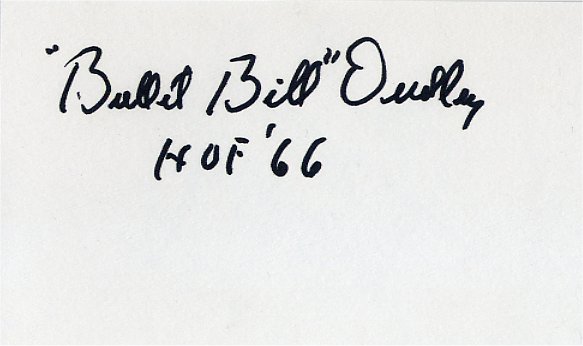 "Bullet Bill" Dudley
HOF '66